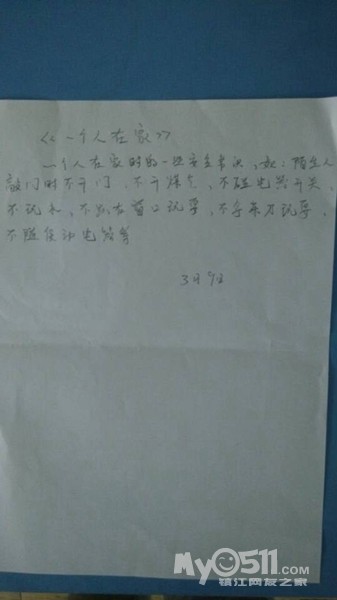 《一个人在家》
一个人在家时的一些安全常识，如：陌生人
敲门时不开门，不开煤气，不碰电器开关，
不玩火，不趴在窗口玩耍，不拿剪刀玩耍，
不随便动电
3月9日
My0511.com
镇江网友之家